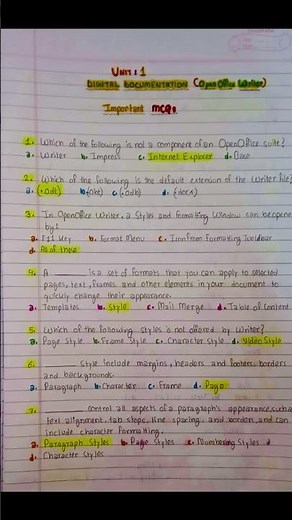 Unit: 1
Digital Documentation (OpenOffice Writer)
Important MCQs
1. Which of the following is not a component of an OpenOffice suite?
a. Writer b. Impress c. Internet Explorer d. Base
2. Which of the following is the default extension of the Writer file?
a. (.odt) b. (.obt) c. (.odb) d. (docx)
3. In OpenOffice Writer, a Styles and Formatting Window can be opene
by?
a. F11 key b. Format Menu c. Formatting Toolbar
d. All of these
4. A ______ is a set of formats that you can apply to selected
pages, text, frames and other elements in your document to
quickly change their appearance.
a. Templates b. Style c. Mail Merge d. Table of Content
5. Which of the following styles is not offered by Writer?
a. Page Style b. Frame Style c. Character Style d. Video Style
6. ______ Style include margins, headers and footers, borders
and backgrounds.
a. Paragraph b. Character c. Frame d. Page
7. ______ control all aspects of a paragraph's appearance, such a
text alignment, tab stops, line spacing, and borders, and can
include character formatting.
a. Paragraph Styles b. Page Styles c. Numbering Styles
d. Character Styles